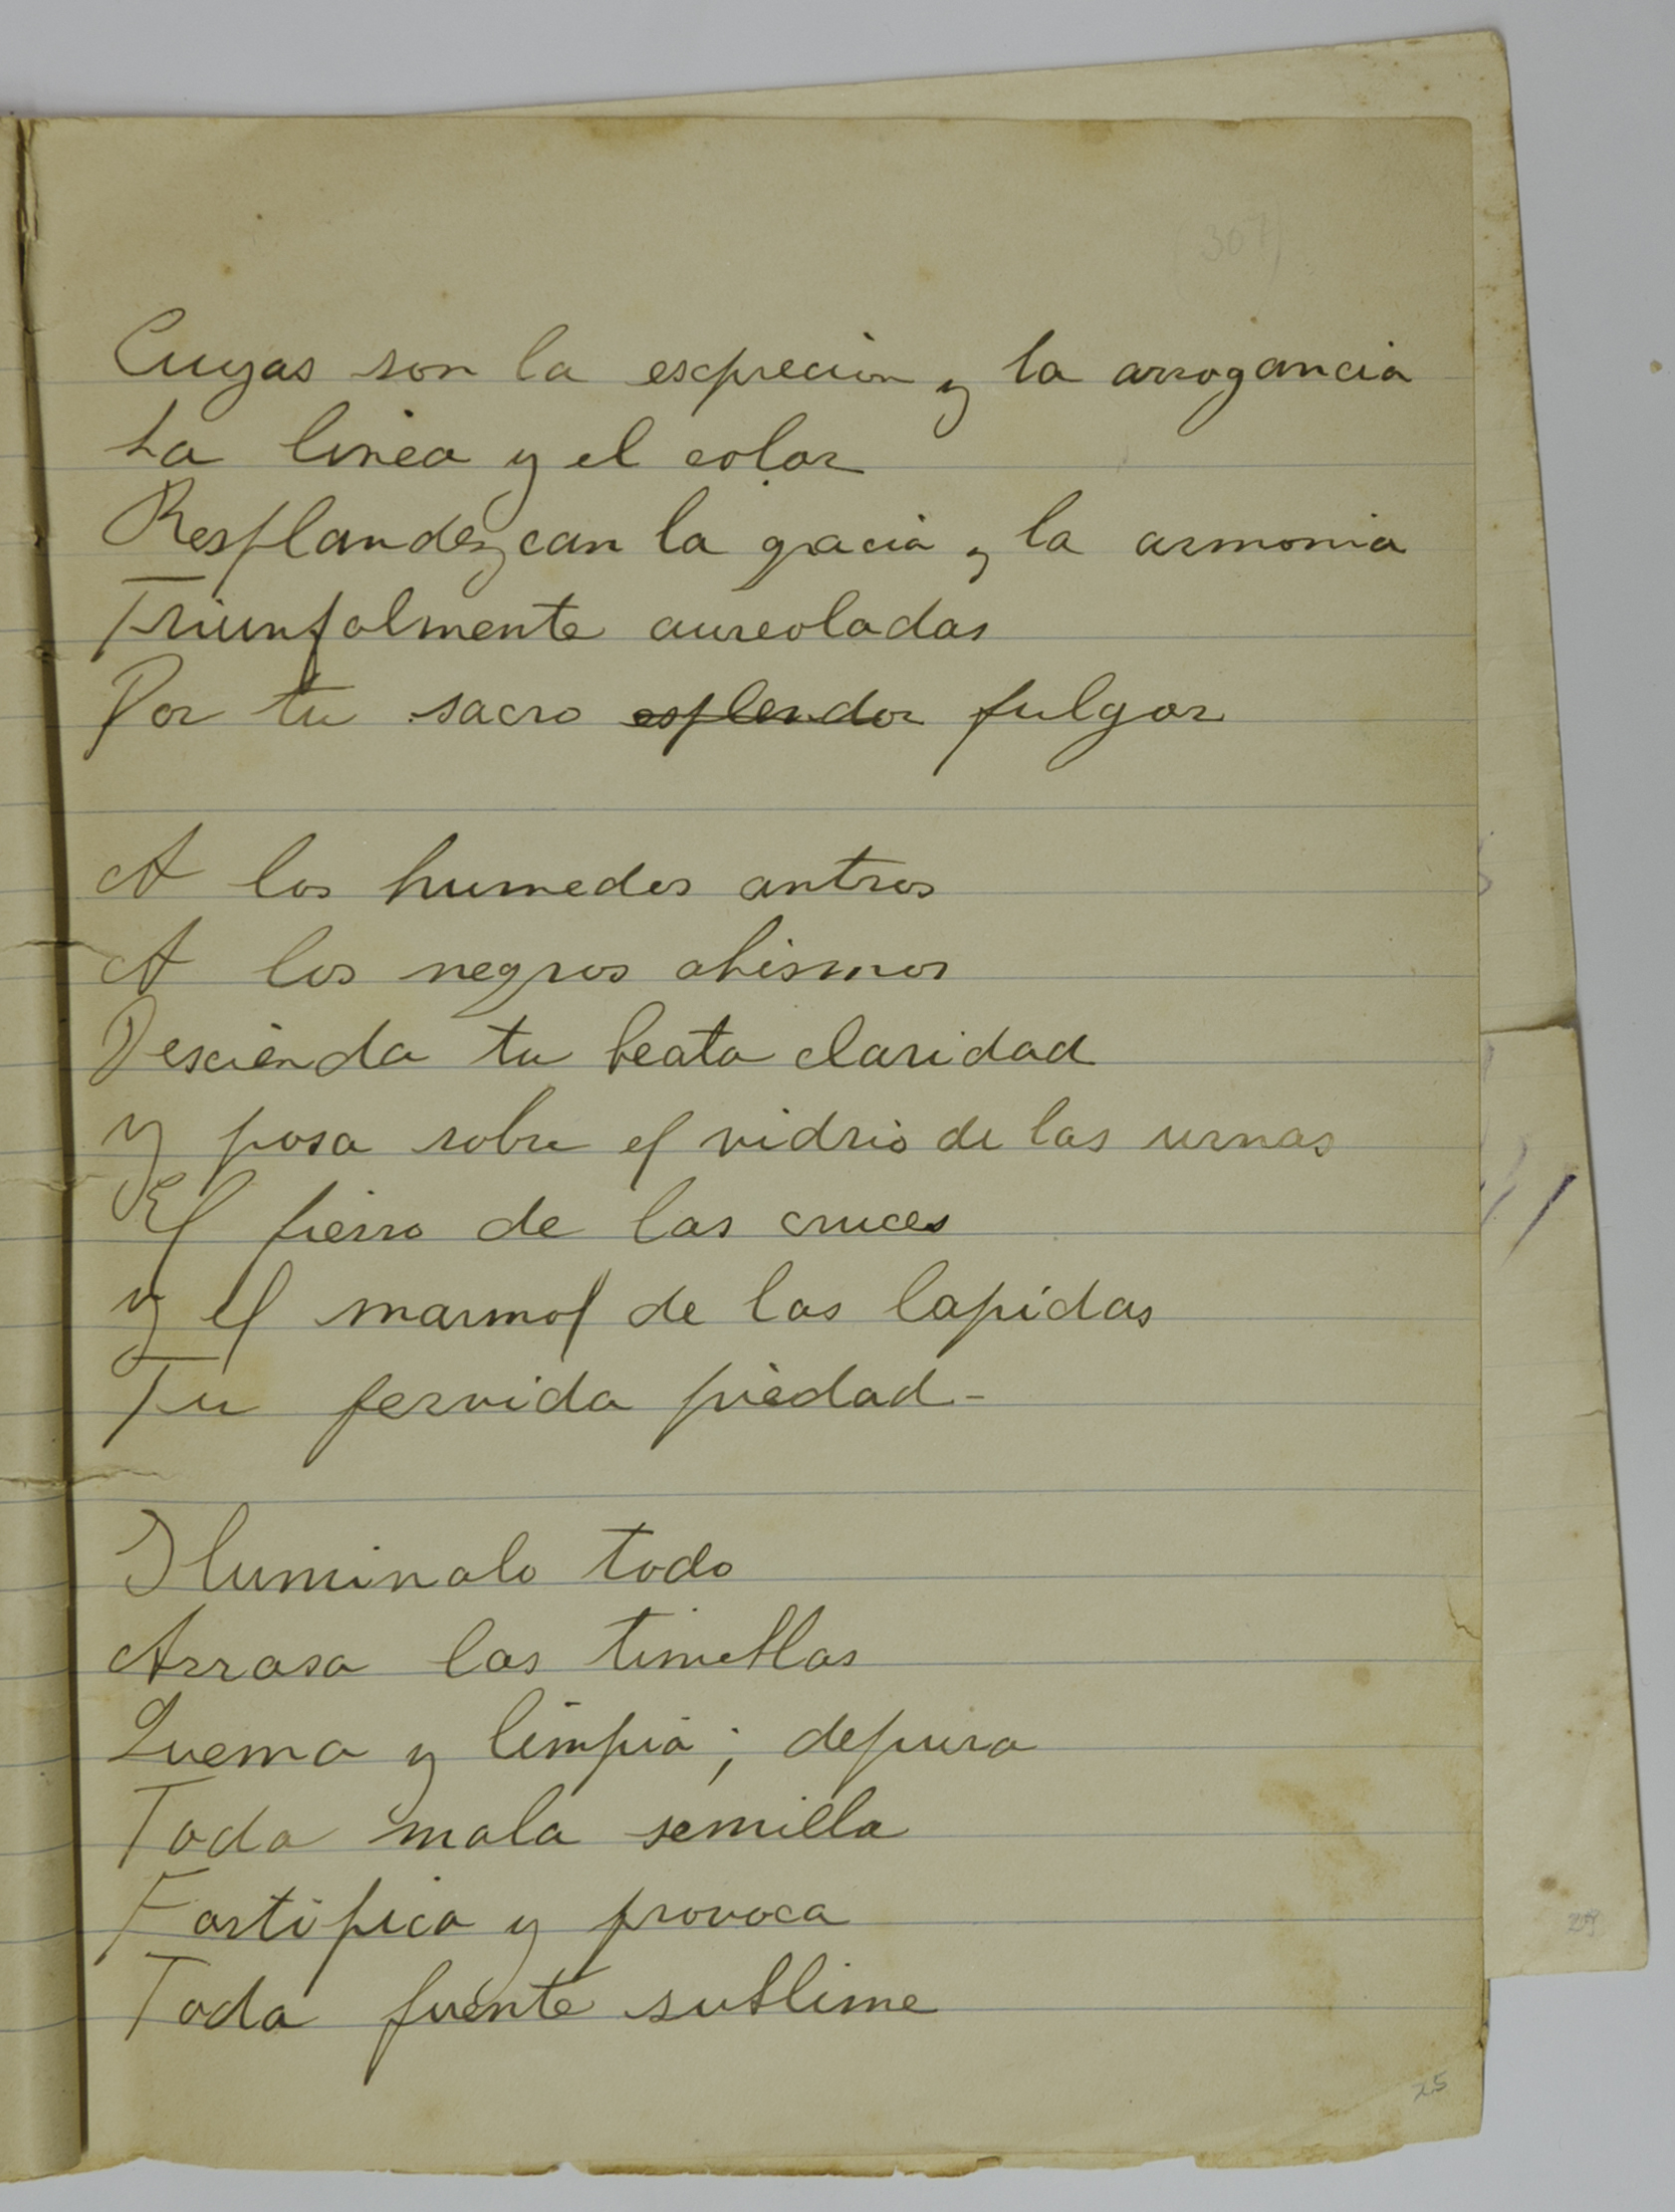 (307)
Cuyas son la esxprecion y la arrogancia
La linea y el color
Resplandezcan la gracia y la armonia
Triunfalmente aureoladas
Por tu sacro esplendor fulgor
A los humedos antros
A los negros abismos
Descienda tu beata claridad
y posa sobre el vidrio de las urnas
El fierro de las cruces
y el marmol de las lapidas
Tu fervida piedad-
Iluminalo todo
Arrasa las tinieblas
Quema y limpia; depura
Toda mala semilla
Fortifica y provoca
Toda fuente sublime
25